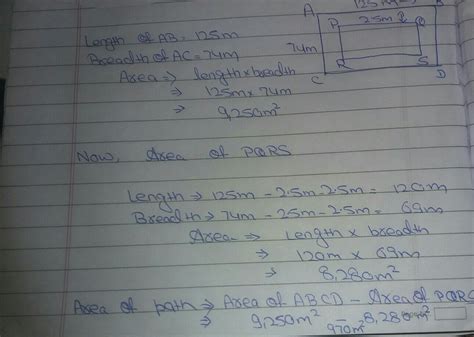 Length of AB = 125m
Breadth of AC = 74m
Area ⇒ length x breadth
⇒ 125m x 74m
⇒ 9,250m²
A
P 2.5m Q
74m
R S
C D
Now, Area of PQRS
Length → 125m - 2.5m 2.5m = 120m
Breadth → 74m - 25m - 2.5m = 69m
Area → length x breadth
⇒ 120m x 69m
⇒ 8,280m²
Area of path → Area of ABCD - Area of PQRS
⇒ 9,250m² - 8,280m²
970m²